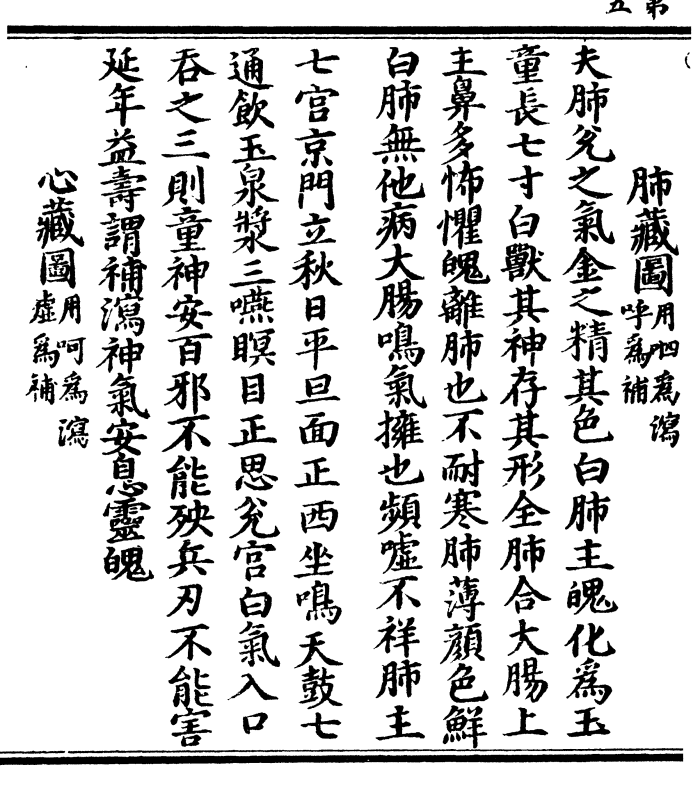 第
五
肺藏圖用呬為瀉
呼為補
夫肺兌之氣金之精其色白肺主魄化為玉
童長七寸白獸其神存其形全肺合大腸上
主鼻多怖懼魄離肺也不耐寒肺薄顏色鮮
白肺無他病大腸鳴氣擁也頻噓不祥肺主
七宮京門立秋日平旦面正西坐鳴天鼓七
通飲玉泉漿三嚥瞑目正思兌宮白氣入口
吞之三則童神安百邪不能殃兵刃不能害
延年益壽謂補瀉神氣安息靈魄
心藏圖用呵為瀉
虛為補